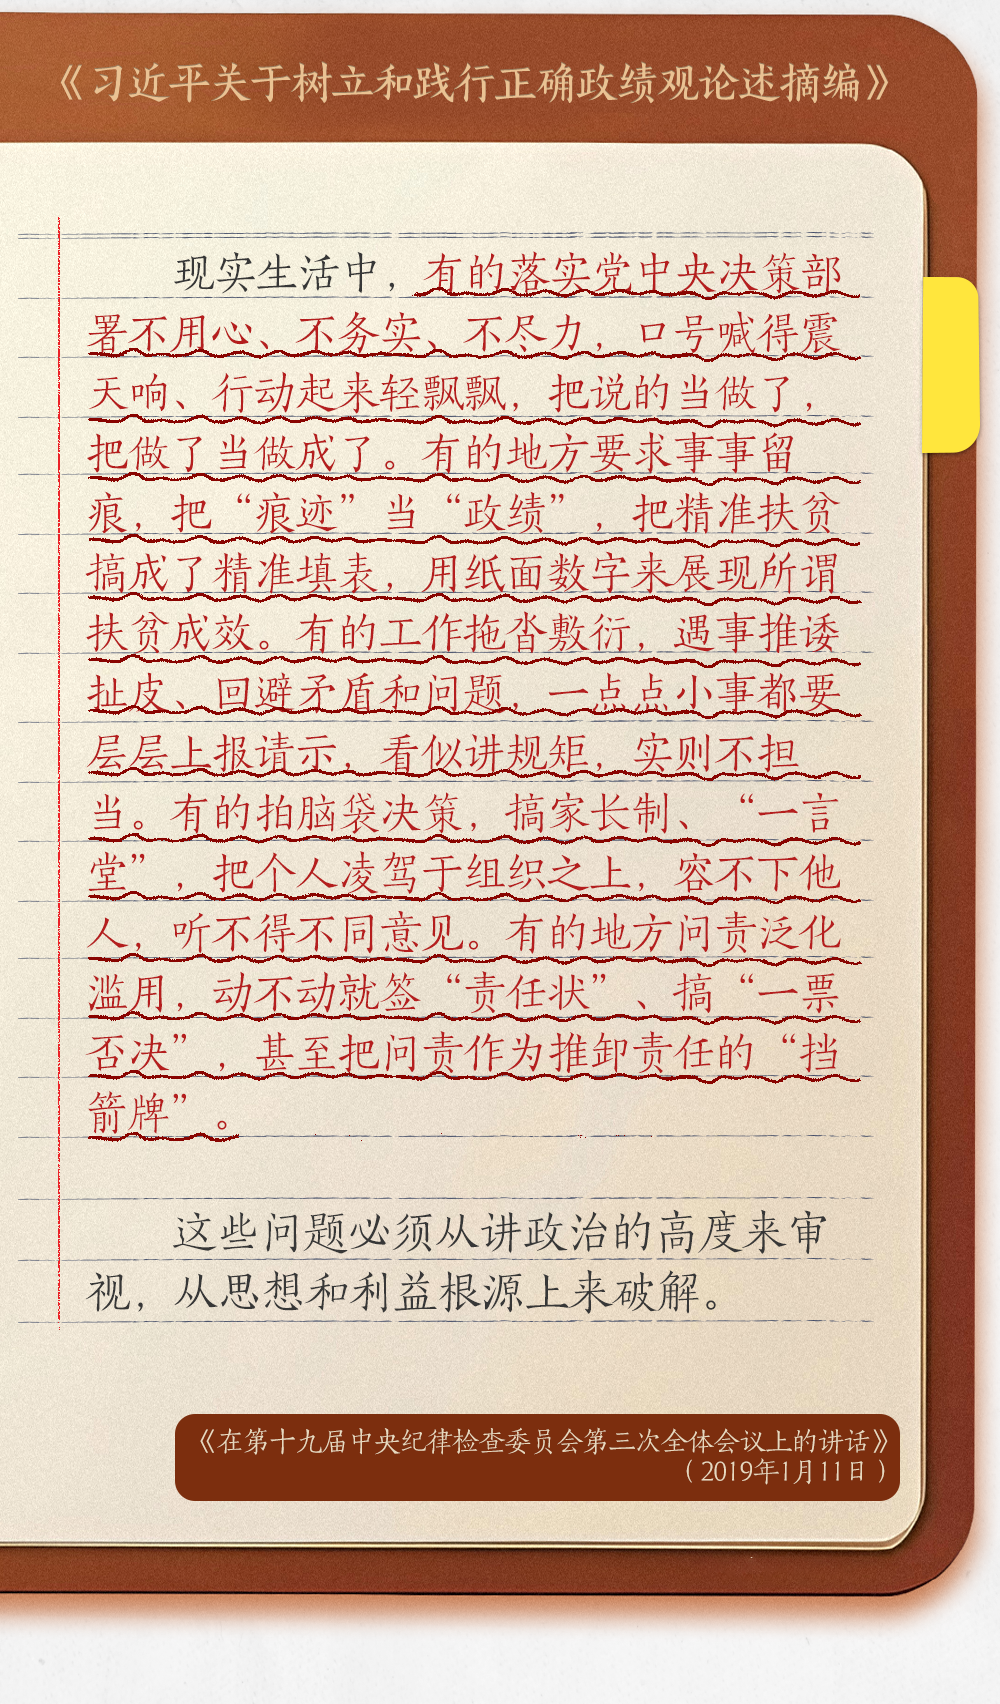 《习近平关于树立和践行正确政绩观论述摘编》
现实生活中，有的落实党中央决策部
署不用心、不务实、不尽力，口号喊得震
天响、行动起来轻飘飘，把说的当做了，
把做了当做成了。有的地方要求事事留
痕，把“痕迹”当“政绩”，把精准扶贫
搞成了精准填表，用纸面数字来展现所谓
扶贫成效。有的工作拖沓敷衍，遇事推诿
扯皮、回避矛盾和问题，一点点小事都要
层层上报请示，看似讲规矩，实则不担
当。有的拍脑袋决策，搞家长制、“一言
堂”，把个人凌驾于组织之上，容不下他
人，听不得不同意见。有的地方问责泛化
滥用，动不动就签“责任状”、搞“一票
否决”，甚至把问责作为推卸责任的“挡
箭牌”。
这些问题必须从讲政治的高度来审
视，从思想和利益根源上来破解。
《在第十九届中央纪律检查委员会第三次全体会议上的讲话》
（2019年1月11日）